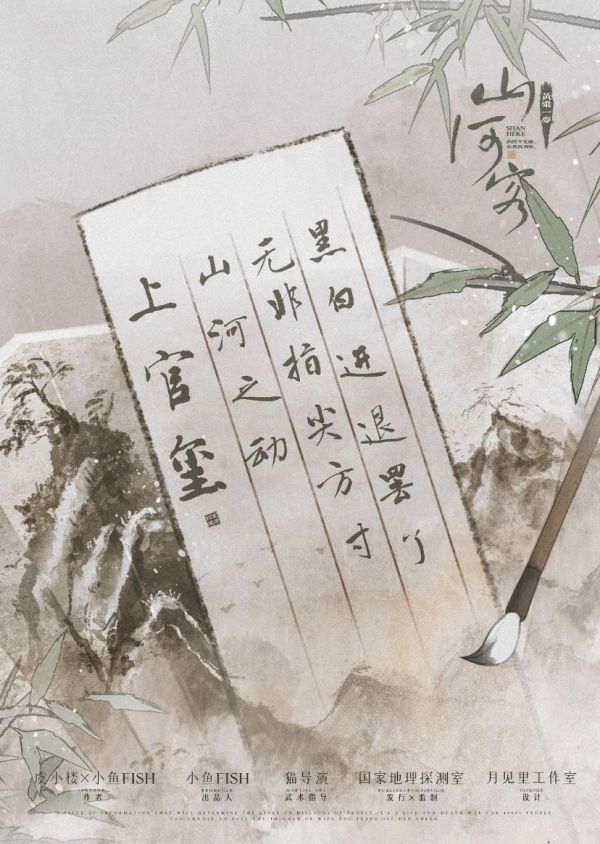 山河客
黄粱一梦
SHAN
HEKE
黑白进退罢了
无非指尖方寸
山河之动
上官玺
虞小楼×小鱼FISH
AUTHOR
作者
小鱼FISH
PRODUCER
出品人
猫导演
MARTIAL ART
武术指导
国家地理探测室
PUBLISHER×SUPERVISE
发行×监制
月见里工作室
DESIGNER
设计
A PIECE OF INFORMATION THAT WILL DETERMINE THE LIVES OF MILLIONS OF PEOPLE, IT'S A LIFE AND DEATH WAR FOR PEOPLE
YOU CHOOSE TO PULL THE TRIGGER OR WIPE THE TEARS OFF HER CHEEK